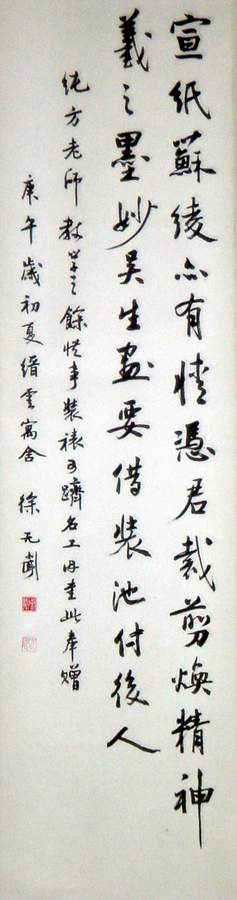 宣紙蘇綾亦有情憑君裁剪煥精神
羲之墨妙吴生畫要借裝池付後人
纯方老师教学之餘從事装裱可躋名工因書此奉赠
庚午歲初夏缙雲寓舍 徐无闻